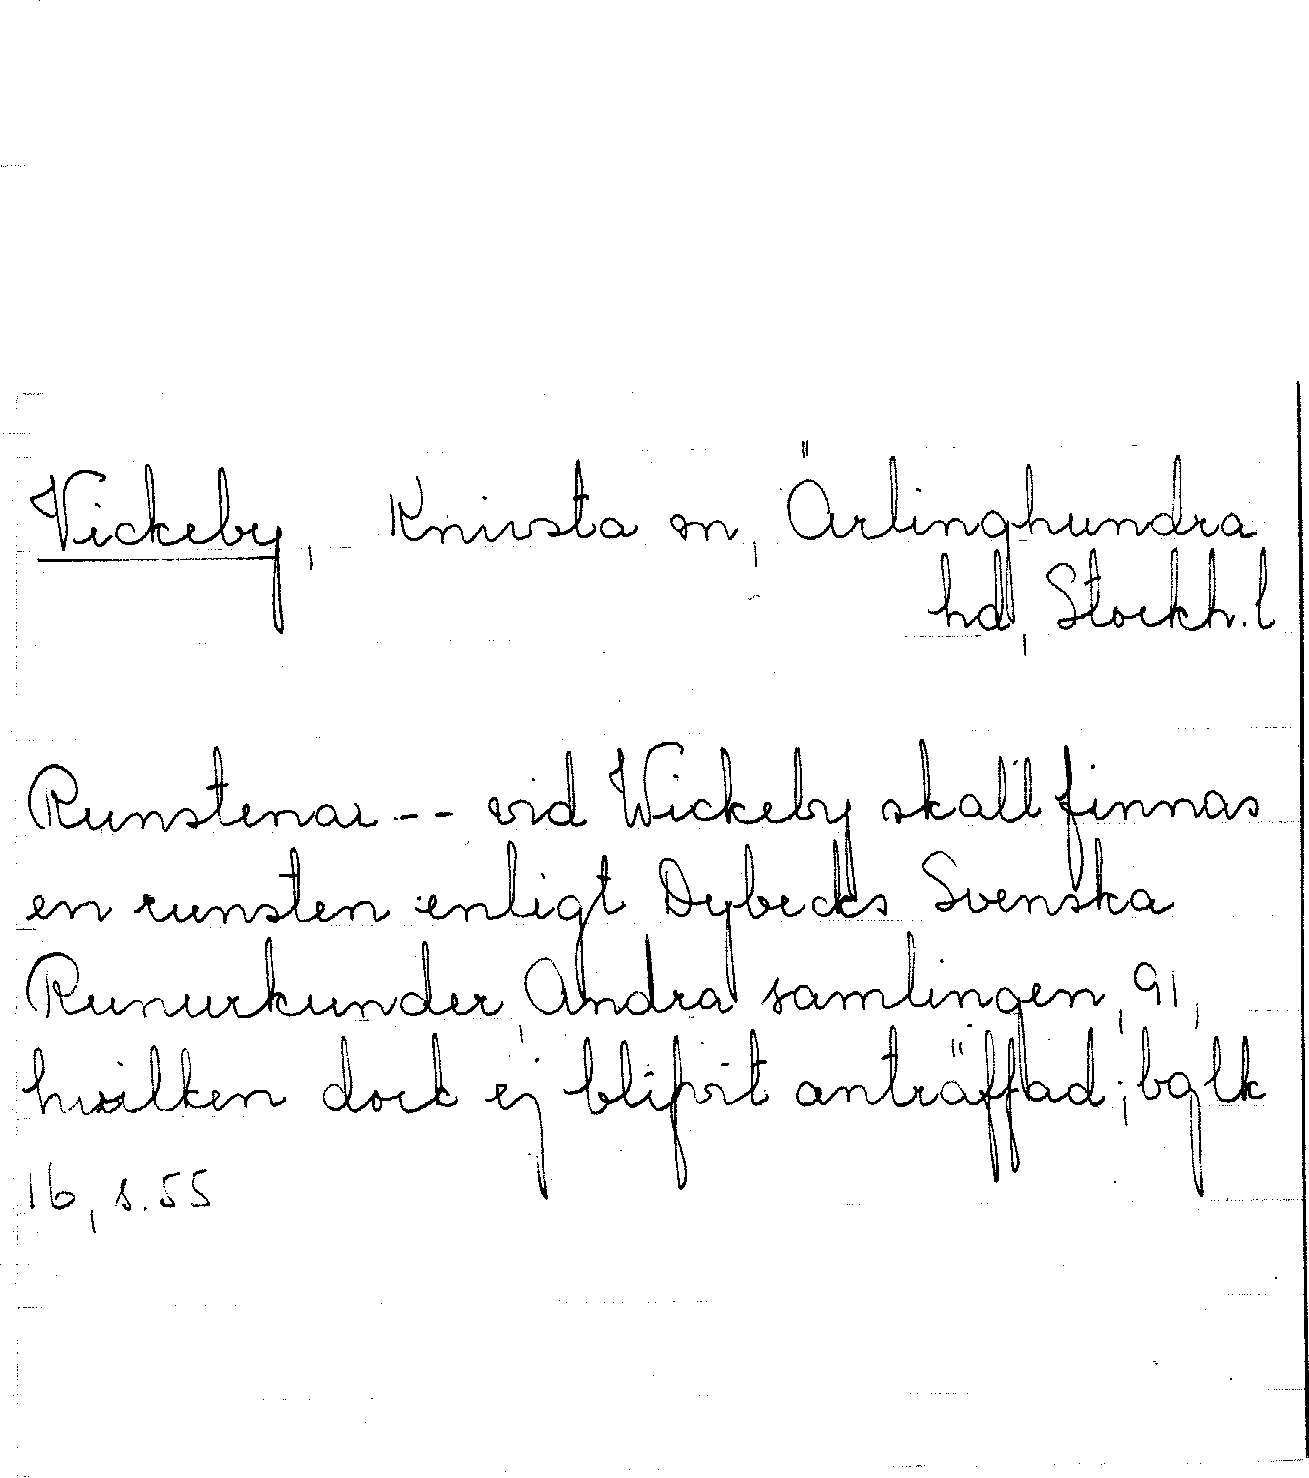 Vickeby, Knivsta sn, Ärlinghundra
hd, Stockh.l
Runstenar -- vid Wickeby skall finnas
en runsten enligt Dybecks Svenska
Runurkunder, Andra samlingen, 91,
hvilken dock ej blifvit anträffad; bglk
16, s. 55